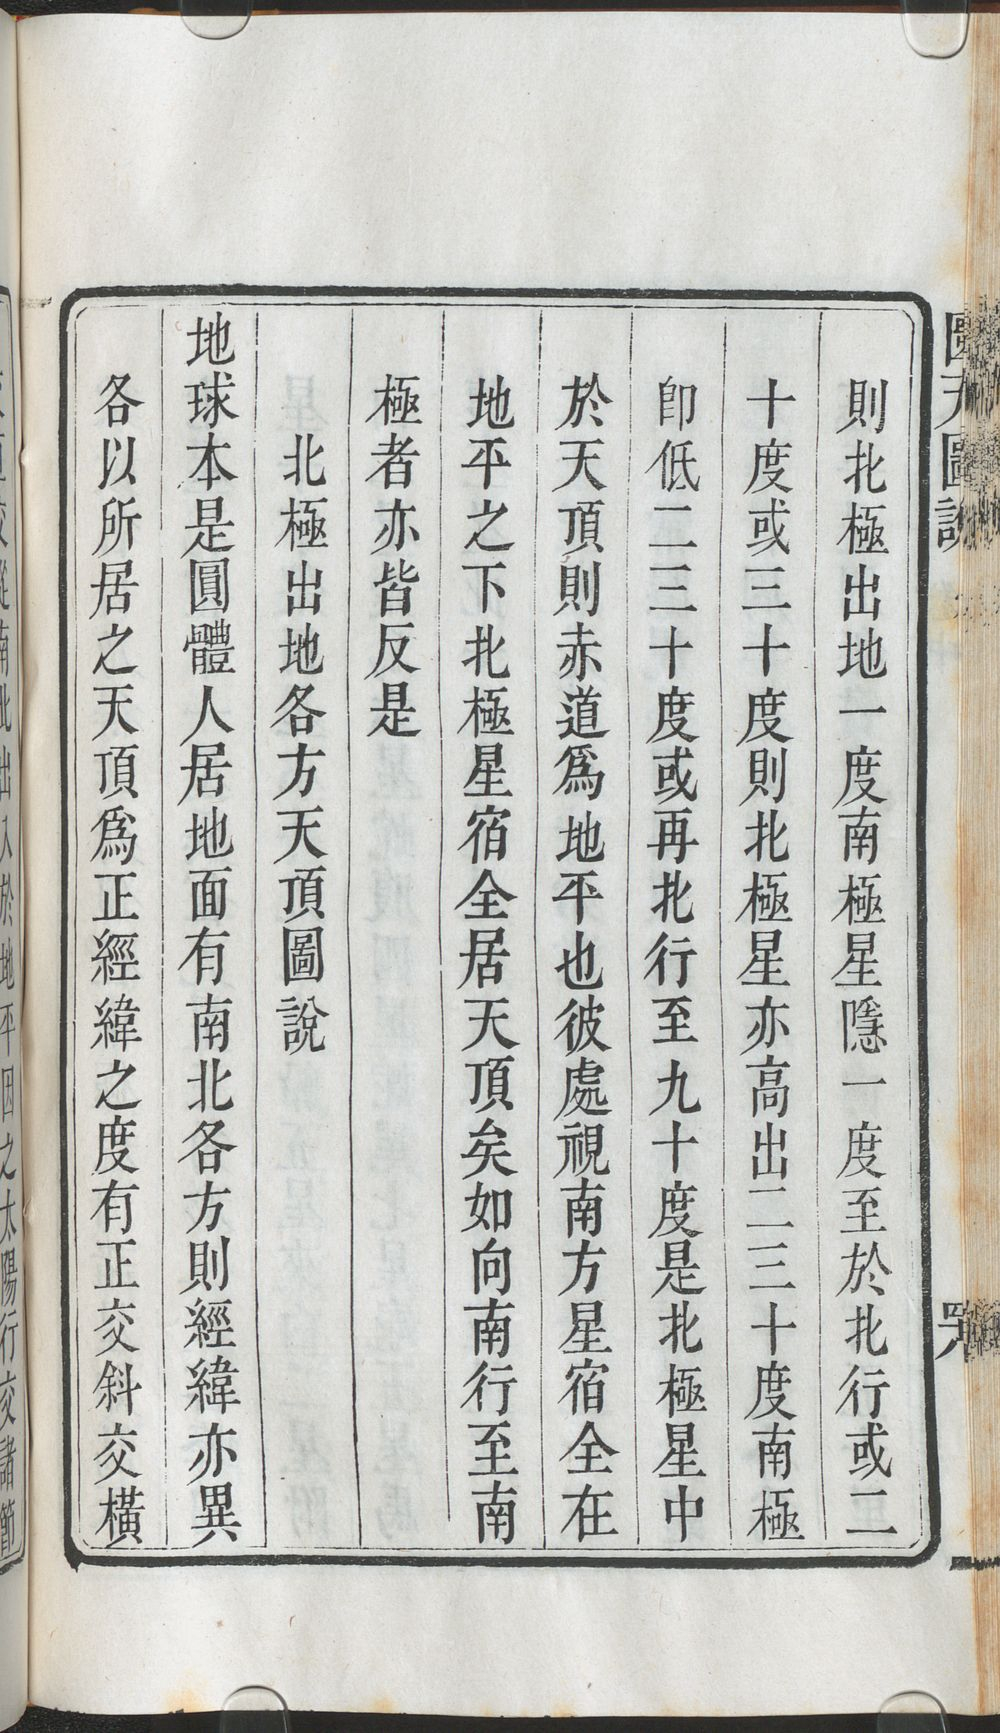 則北極出地一度南極星隱一度至於北行或二
十度或三十度則北極星亦高出二三十度南極
卽低二三十度或再北行至九十度是北極星中
於天頂則赤道爲地平也彼處視南方星宿全在
地平之下北極星宿全居天頂矣如向南行至南
極者亦皆反是
北極出地各方天頂圖說
地球本是圓體人居地面有南北各方則經緯亦異
各以所居之天頂爲正經緯之度有正交斜交橫
南北出入於地平因之太陽行交諸節